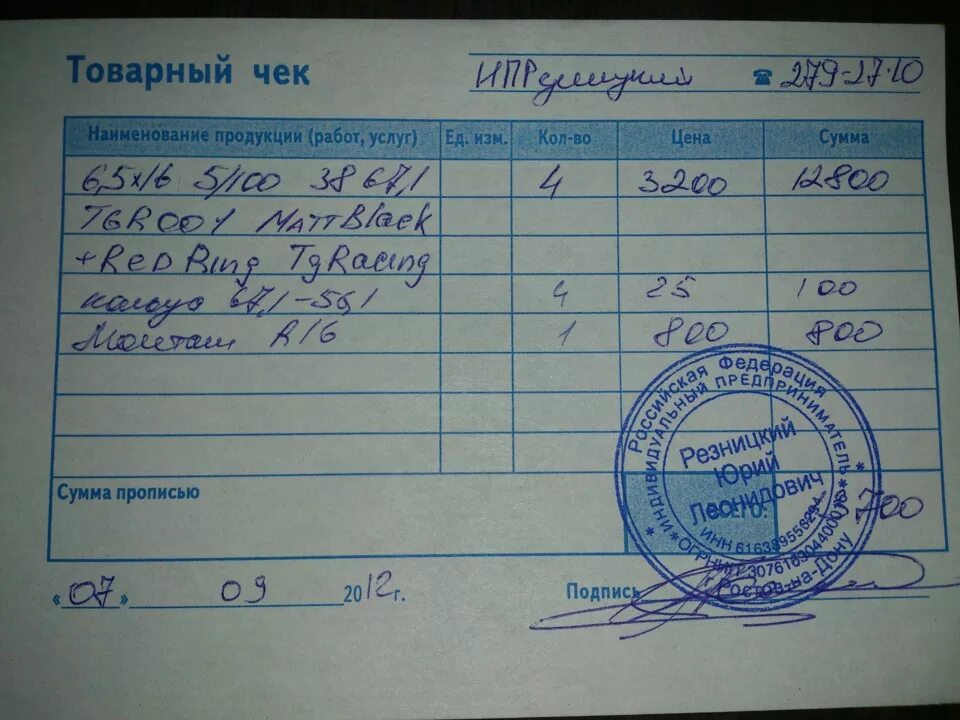 Товарный чек ИП Резницкий ☎ 279-27-10
Наименование продукции (работ, услуг) Ед. изм. Кол-во Цена Сумма
6,5x16 5/100 38 67,1 4 3200 12800
TGR001 MattBlack
+Red Ring TgRacing
кольца 67,1-56,1 4 25 100
Монтаж R16 1 800 800
Сумма прописью
700
Российская Федерация
ИНДИВИДУАЛЬНЫЙ ПРЕДПРИНИМАТЕЛЬ
Резницкий
Юрий
Леонидович
г. Ростов-на-Дону
«07» 09 2012г. Подпись